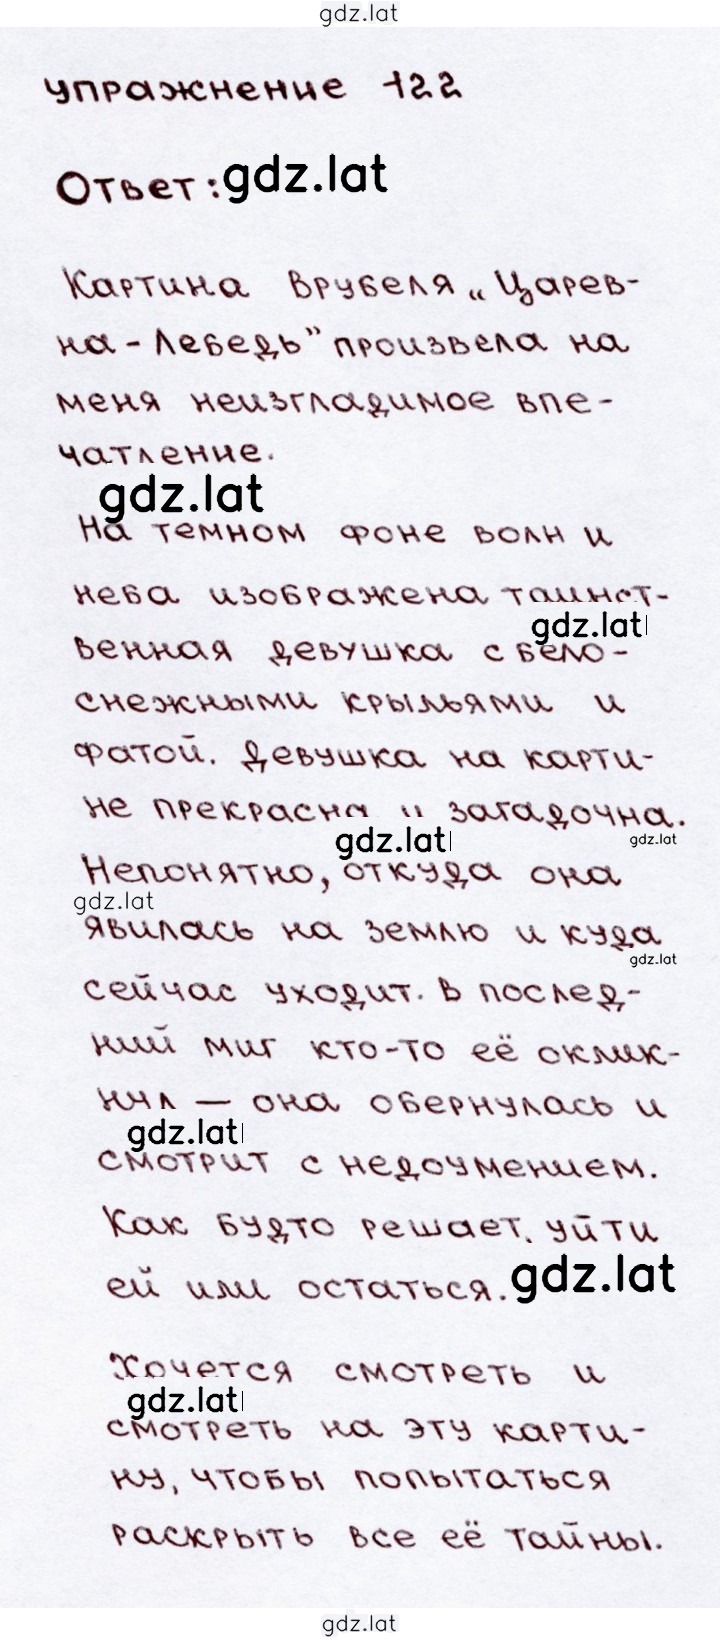 gdz.lat
упражнение 122
Ответ: gdz.lat
Картина Врубеля „Царев-
на-Лебедь" произвела на
меня неизгладимое впе-
чатление.
gdz.lat
На темном фоне волн и
неба изображена таинст-
gdz.lat
венная девушка с бело-
снежными крыльями и
фатой. Девушка на карти-
не прекрасна и загадочна.
gdz.lat
gdz.lat
Непонятно, откуда она
gdz.lat
явилась на землю и куда
gdz.lat
сейчас уходит. В послед-
ний миг кто-то её оклик-
нул — она обернулась и
gdz.lat
смотрит с недоумением.
Как будто решает, уйти
ей или остаться. gdz.lat
Хочется смотреть и
gdz.lat
смотреть на эту карти-
ну, чтобы попытаться
раскрыть все её тайны.
gdz.lat